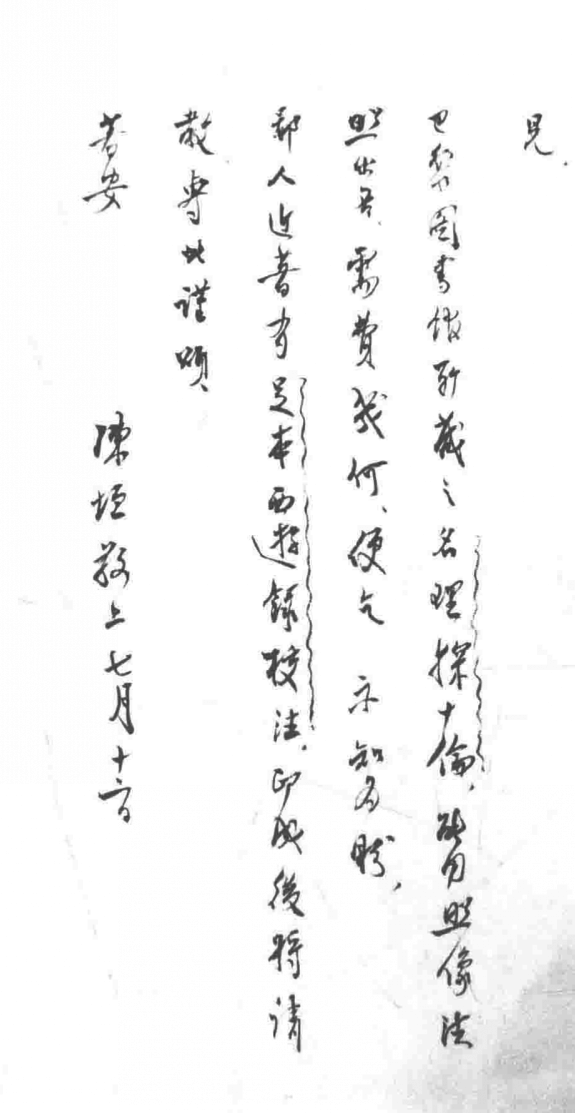 見.
巴黎圖書館所藏之名理探十倫,能用照像法
照出否,需費幾何、便乞 示知為盼,
鄙人近著有足本西遊錄校注,印成後將請
教,專此謹頌
著安
陳垣敬上 七月十六日